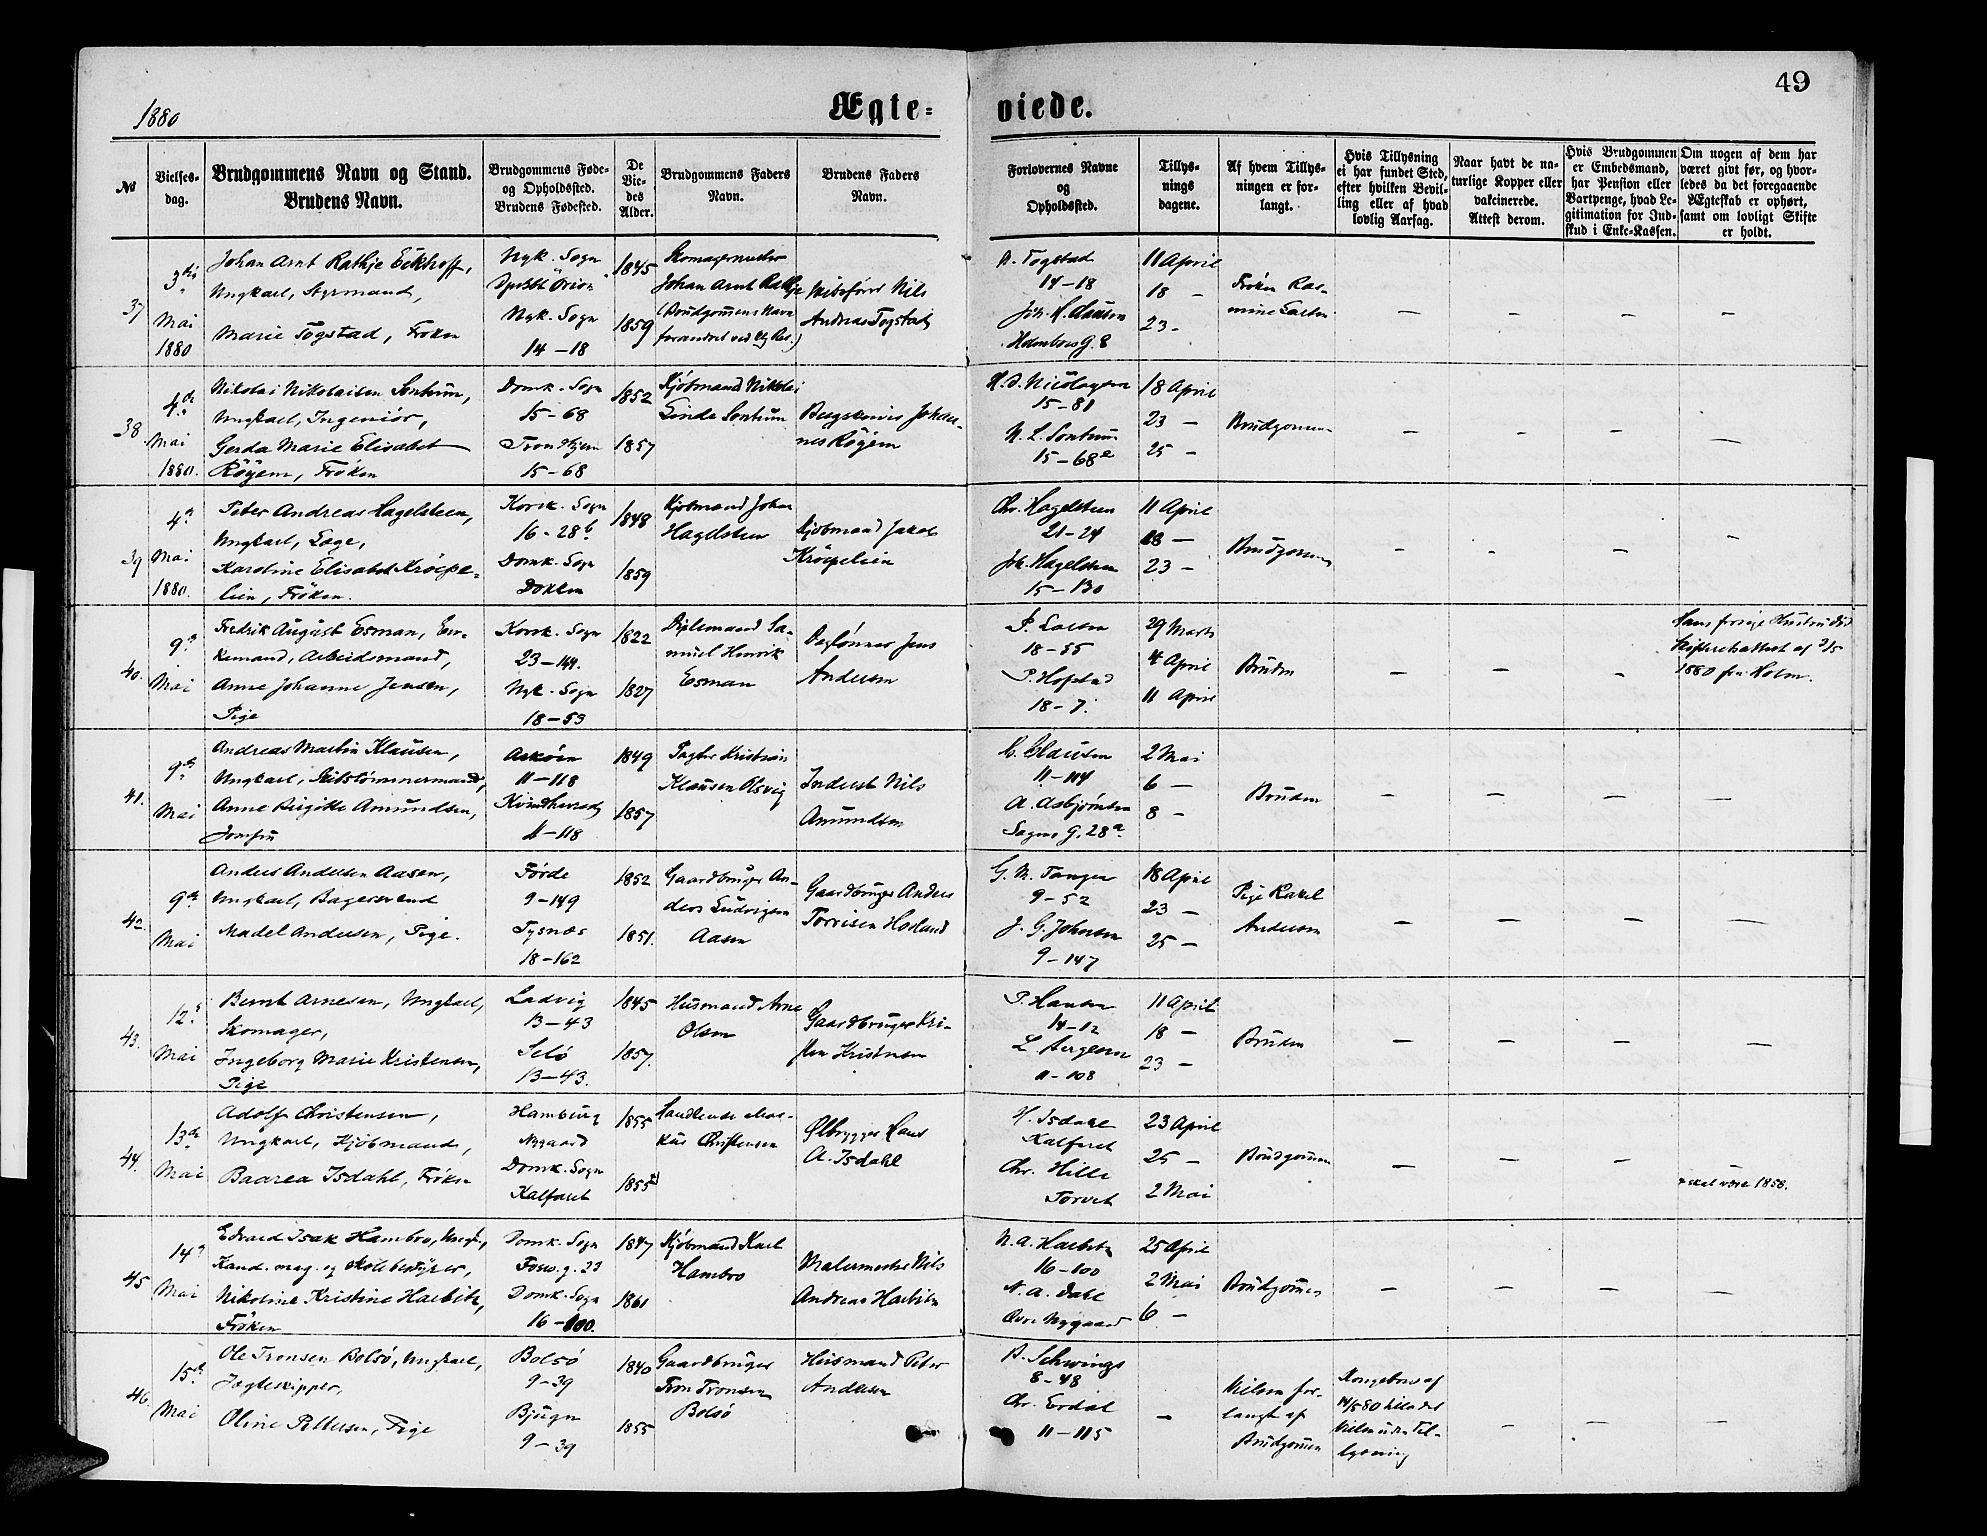 49
1880
Ægte=
viede.
№
Vielses-
dag.
Brudgommens Navn og Stand.
Brudens Navn.
Brudgommens Føde-
og Opholdssted.
Brudens Fødested.
De
Vie-
des
Alder.
Brudgommens Faders
Navn.
Brudens Faders
Navn.
Forlovernes Navne
og
Opholdssted.
Tillys-
nings
dagene.
Af hvem Tillys-
ningen er for-
langt.
Hvis Tillysning
ei har fundet Sted,
efter hvilken Bevil-
ling eller af hvad
lovlig Aarsag.
Naar havt de na-
turlige Kopper eller
vakcinerede.
Attest derom.
Hvis Brudgommen
er Embedsmand,
har Pension eller
Vartpenge, hvad Le-
gitimation for Ind-
skud i Enke-Kassen.
Om nogen af dem har
været givt før, og hvor-
ledes da det foregaaende
Ægteskab er ophørt,
samt om lovligt Skifte
er holdt.
37
3die
Mai
1880
Johan Arnt Rathje Eckhoff,
Ungkarl, Styrmand,
Marie Togstad, Frøken
Nyk. Sogn
Nyk. Sogn
14-18
1845
1859
Johan Arnt Rathje
(Brudgommens Navn
Skibsfører Nils
Andreas Togstad
A. Togstad
14-18
Joh. H. Clausen
11 April
18 -
23 -
Frøken Ras-
mine Larsen
38
4de
Mai
1880.
Nikolai Nikolaisen Sontum,
Ungkarl, Ingeniør,
Gerda Marie Elisabet
Røyem, Frøken
Domk. Sogn
15-68
Trondhjem
15-68
1852
1857
Kjøbmand Nikolai
Linde Sontum
Johan-
nes Røyem
15-81
N. L. Sontum
15-68a
18 April
23 -
25 -
Brudgommen
39
4de
Mai
1880.
Peter Andreas Hagelsteen,
Ungkarl, Læge,
Karoline Elisabet Krøepe-
lien, Frøken.
Korsk. Sogn
16-28b
Domk. Sogn
Dokken
1848
1859
Kjøbmand Johan
Hagelsteen
Kjøbmand Jakob
Krøepelien
Chr. Hagelsteen
21-24
Joh. Hagelsteen
15-130
11 April
18 -
23 -
Brudgommen
40.
9de
Mai
Fredrik August Esman, En-
kemand, Arbeidsmand,
Anne Johanne Jensen,
Pige
Korsk. Sogn
23-144.
Nyk. Sogn
18-53
1822
1827
Samuel Henrik
Esman
Jens
Andersen
P. Larsen
18-55
P. Hopstad
18-7.
29 Marts
4 April
11 April
Bruden
Hans forrige Hustru død
Skifteretsattest af 3/5
1880 fra Holm.
41.
9de
Mai
Andreas Martin Klausen,
Ungkarl, Skibstømmermand,
Anne Birgitte Amundsen,
Jomfru
Askøen
11-118
Kvindherred
11-118
1849
1857
Kristian
Klausen Olsvig
Inderst Nils
Amundsen
C. Clausen
11-114
A. Asbjørnsen
28a
2 Mai
6 -
8 -
Bruden
42.
9de
Mai
Anders Andersen Aasen,
Ungkarl, Bagersvend
Madel Andersen, Pige.
Førde
9-149
Tysnæs
18-162
1852
1851.
Gaardbruger An-
ders Ludvigsen
Aasen
Gaardbruger Anders
9-52
J. G. Johnsen
9-147
18 April
23 -
25 -
Pige Rakel
Andersen
43.
12te
Mai
Bernt Arnesen, Ungkarl,
Skomager,
Ingeborg Marie Kristensen,
Pige
Ladvig
13-43
Selø
13-43.
1845
1857.
Husmand Arne
Olsen
Gaardbruger Kri-
sten Kristensen
P. Hansen
14-12
L. Børgesen
11-108
11 April
18 -
23 -
Bruden
44.
13de
Mai
Adolf Christensen,
Ungkarl, Kjøbmand,
Baarea Isdahl, Frøken
Hamburg
Nygaard
Domk. Sogn
Kalfaret
1855
1855
Handlende Mar-
kus Christensen
Ølbrygger Hans
A. Isdahl
H. Isdahl
Kalfaret
Chr. Hille
Torvet
23 April
25 -
2 Mai
Brudgommen
skal være 1858.
45
14de
Mai
Edvard Isak Hambro, Ungk.,
Kand. mag. og Skolebestyrer,
Nikoline Kristine Harbitz,
Frøken
Domk. Sogn
23
Domk. Sogn
16-100.
1847
1861
Kjøbmand Karl
Hambro
Malermester Nils
Andreas Harbitz
N. A. Harbitz
16-100
N. A. Dahl
Øvre Nygaard
25 April
2 Mai
6 -
Brudgommen
46.
15de
Mai
Ole Tronsen Bolsø, Ungkarl,
Jægteskipper,
Oline Pettersen, Pige
Bolsø
9-39
Bjugn
9-39
1840
1855
Gaardbruger
Tron Tronsen
Bolsø
Husmand Peter
Andersen
A. Schwings
8-48
Chr. Erdal
11-115
Vielsen for-
langt af
Brudgommen
Kongebrev af
14/5 80 tillader
Vielsen uden Til-
lysning